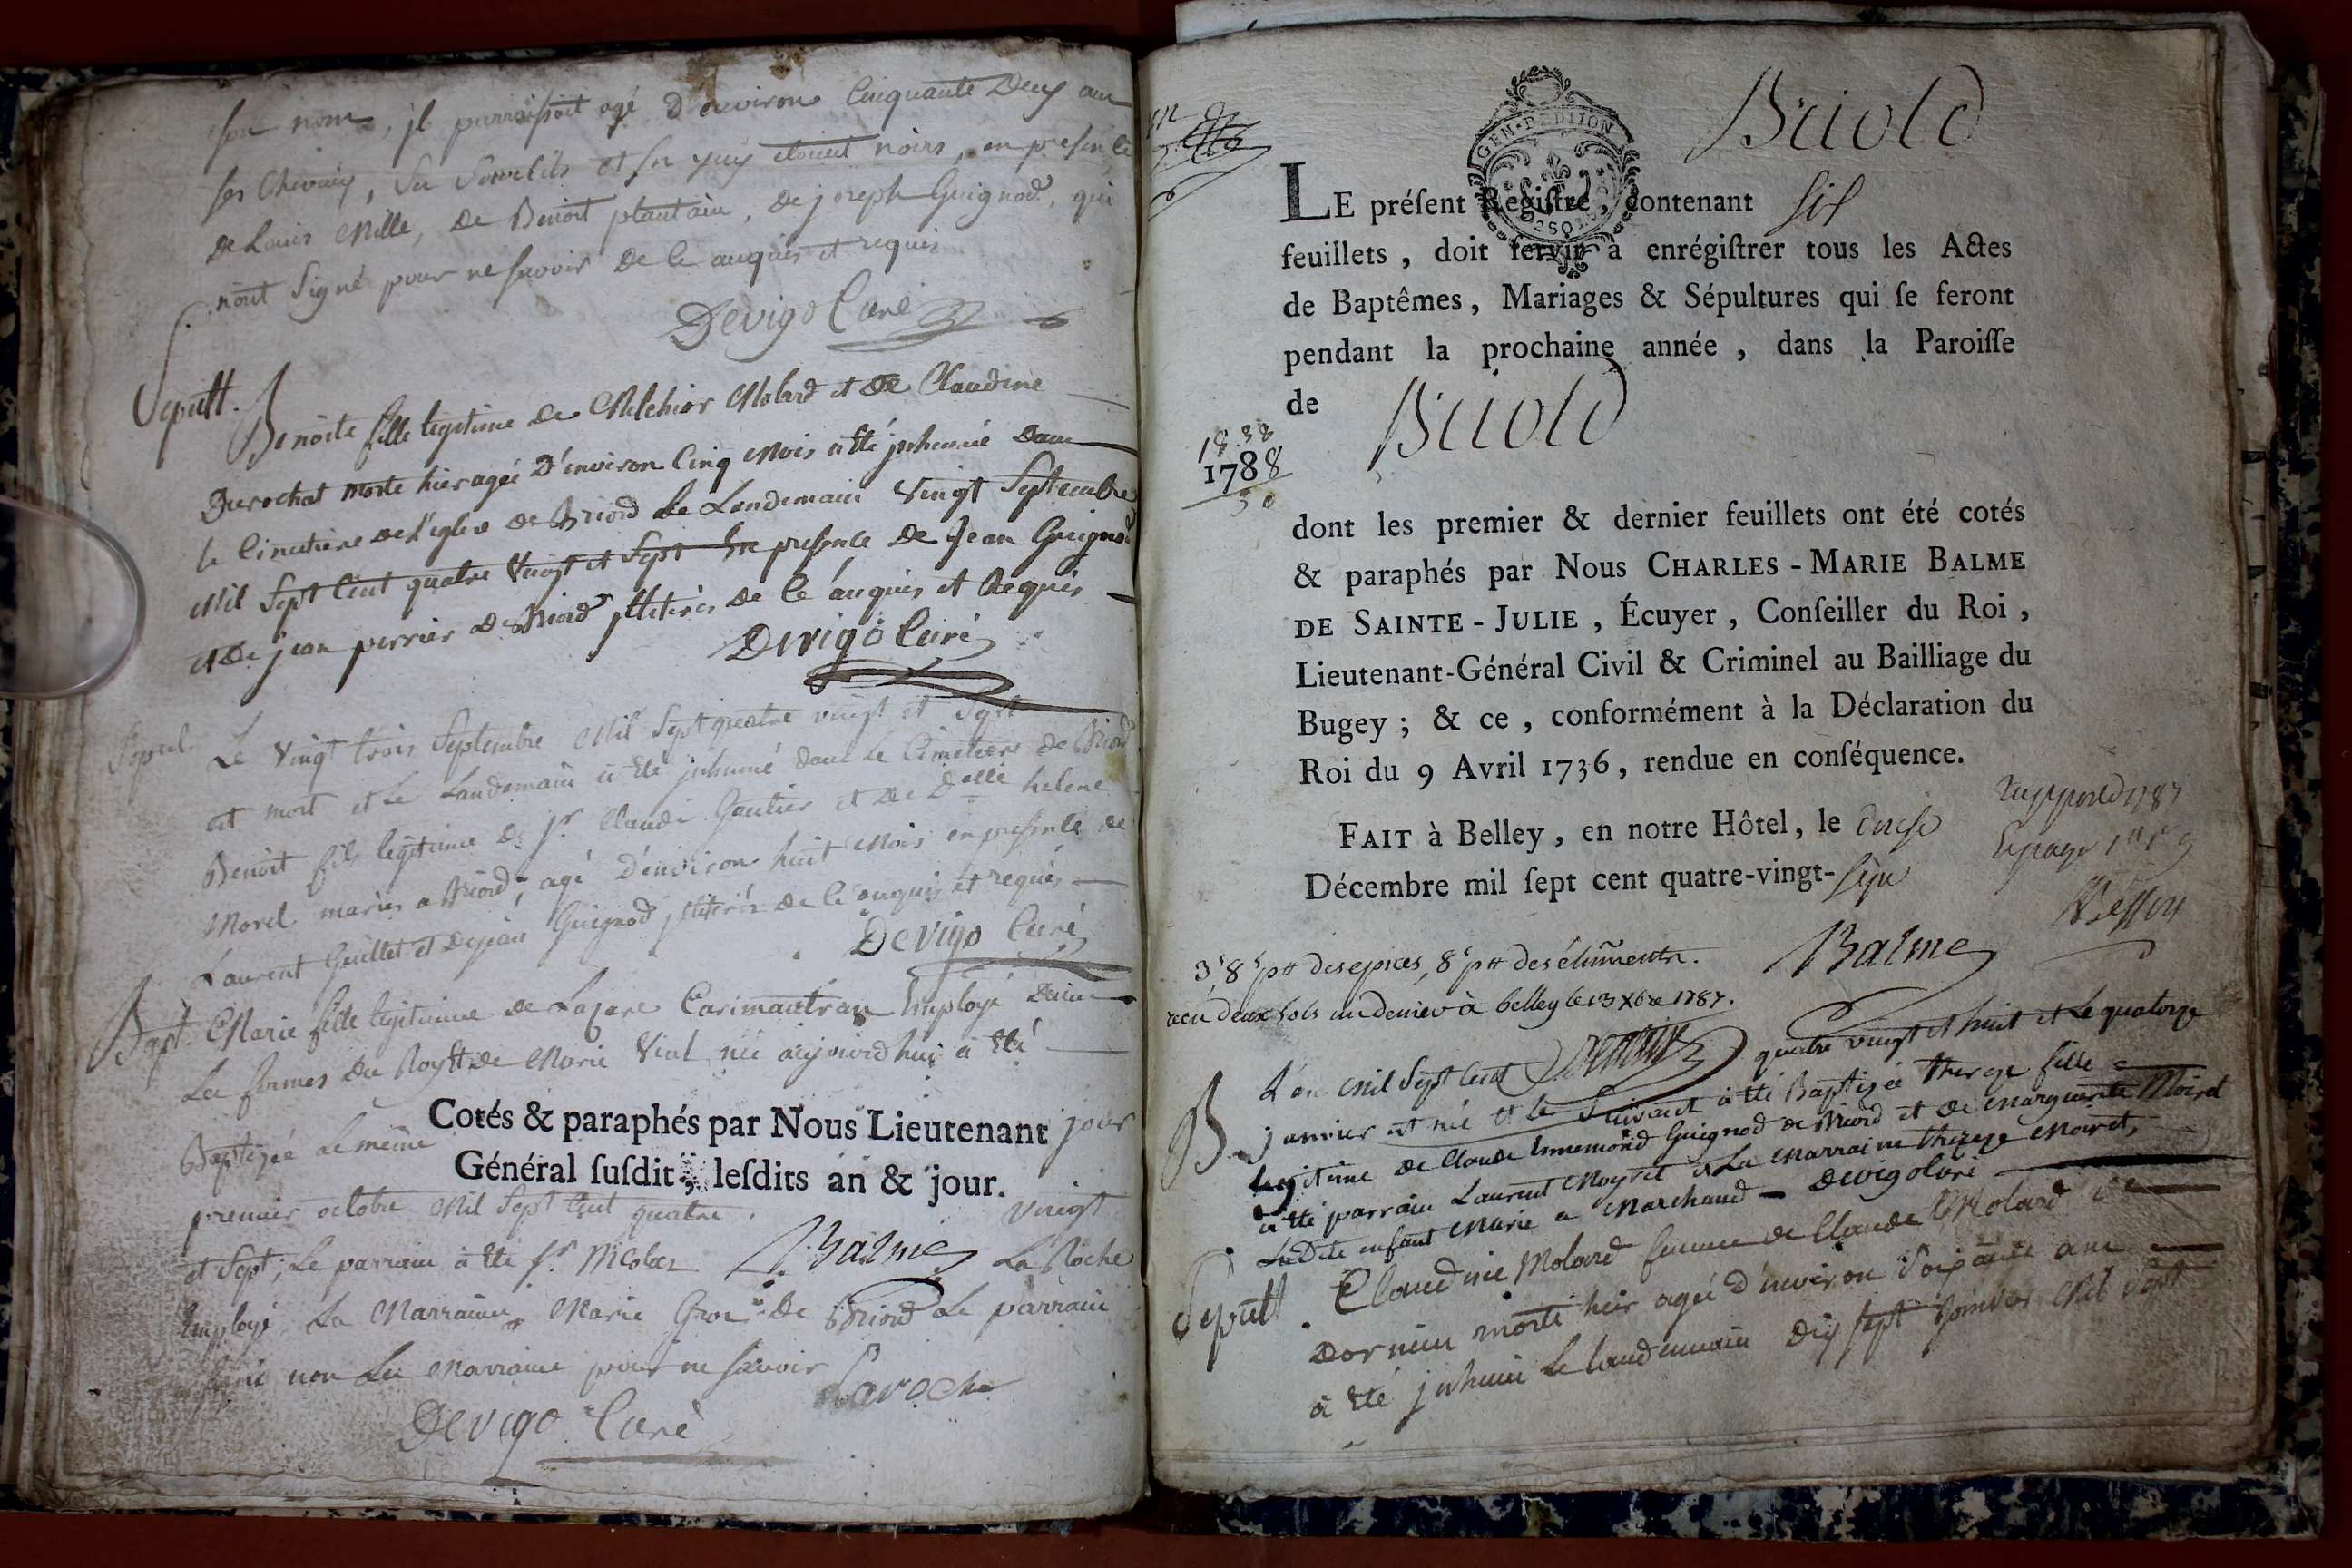 son nom, jl parroissoit agé D'environ Cinquante Deux ans
ses Cheveux, Ses Sourcils et ses yeux etoient noirs, en presence
de Louis Mille, de Benoit plantain, de joseph Guignod, qui
n'ont Signé pour ne Savoir De ce enquis et requis
Devigo Curé
Sepult. Benoite fille legitime de Melchior Molard et de Claudine
Durochat morte hier agée D'environ Cinq Mois a été jnhumée dans
le Cimetiere de l'eglise de Briord le Landemain Vingt Septembre
Mil Sept Cent quatre Vingt et Sept En presence de Jean Guignod
et De jean perrier de Briord jlliterés de ce enquis et Requis
Devigo Curé
Sepul. Le Vingt trois Septembre Mil Sept quatre vingt et Sept
est mort et Le Landemain a été jnhumé dans Le Cimetiere de Briord
Benoit fils legitime de Sr. Claude Gautier et de Delle helene
Morel mariés a Briord, agé D'environ huit Mois en presence de
Laurent Guillet et De jean Guignod jlliterés de ce enquis et requis
Devigo Curé
Bapt. Marie fille legitime de Lazare Carimantran Employé dans
Les fermes du Roy et de Marie Vial née aujourdhui a été
Baptizée le même jour
Cotés & paraphés par Nous Lieutenant
Général ſuſdit, leſdits an & jour.
premier octobre Mil Sept Cent quatre vingt
et Sept; Le parrain a été Sr. Nicolas La Roche
Balme
Employé La Marraine Marie Gros De Briord Le parrain
signé non La Marraine pour ne Savoir
Laroche
Devigo Curé
Briord
GEN. DE DIJON
LE préſent Regiſtre, contenant six
feuillets, doit ſervir à enrégiſtrer tous les Actes
de Baptêmes, Mariages & Sépultures qui ſe feront
pendant la prochaine année, dans la Paroiſſe
de Briord
1788
dont les premier & dernier feuillets ont été cotés
& paraphés par Nous CHARLES-MARIE BALME
DE SAINTE-JULIE, Écuyer, Conſeiller du Roi,
Lieutenant-Général Civil & Criminel au Bailliage du
Bugey; & ce, conformément à la Déclaration du
Roi du 9 Avril 1736, rendue en conſéquence.
FAIT à Belley, en notre Hôtel, le
Décembre mil ſept cent quatre-vingt-sept
Balme
à belley le 13 Xbre 1787.
L'an Mil Sept Cent quatre vingt et huit et Le quatorze
B. janvier est née et le Suivant a été Baptizée Thereze fille
legitime de Claude Ennemond Guignod de Briord et de Marguerite Moiret
a été parrain Laurent Moyret et La Marraine thereze Moiret,
La Dite enfant Marie a Marchand - Devigo Curé
Sepult. Claudine Molard femme de Claude Molard
morte hier agée d'environ Soixante ans
a été jnhumée Le landemain Dix Sept Janvier Mil Sept